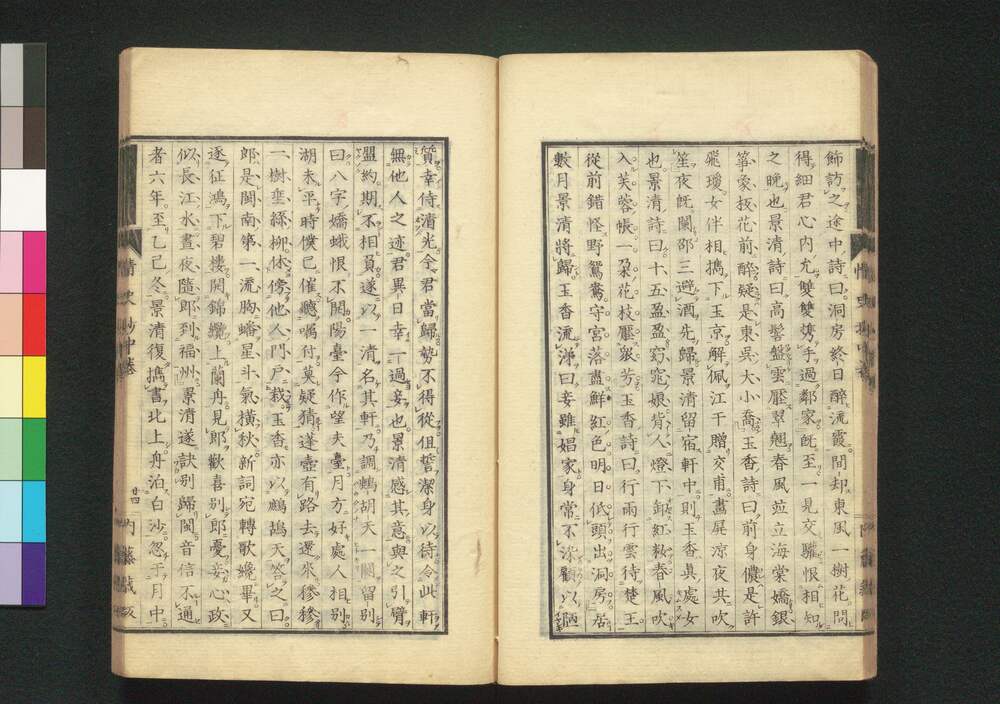 飾訪之途中詩曰洞房終日醉流霞間却東風一樹花問
得細君心內允雙雙携手過鄰家既至一見交驩恨相知
之晚也景清詩曰高髻盤雲壓翠翹春風竝立海棠嬌銀
箏象板花前醉疑是東吳大小喬玉香詩曰前身儂是許
飛瓊女伴相攜下玉京解佩江干贈交甫畫屏涼夜共吹
笙夜既闌邵三避酒先歸景清留宿軒中則玉香眞處女
也景清詩曰十五盈盈窈窕娘背人燈下卸紅粧春風吹
入芙蓉帳一朶花枝壓衆芳玉香詩曰行雨行雲待楚王
從前錯怪野鴛鴦守宮落盡鮮紅色明日低頭出洞房居
數月景清將歸玉香流涕曰妾雖娼家身常不染顧以陋
質幸侍清光今君當歸勢不得從但誓潔身以待令此軒
無他人之迹君異日幸一過妾也景清感其意與之引臂
盟約期不相負遂以一清名其軒乃調鷓胡天一闋留別
曰八字嬌蛾恨不開陽臺今作望夫臺月方好處人相別
湖未平時僕已催聽囑付莫疑猜蓬壺有路去還來穇穇
一樹垂絲柳休傍他人門戶栽玉香亦以鷓鴣天答之曰
郎是閩南第一流胸蟠星斗氣橫秋新詞宛轉歌纔畢又
逐征鴻下碧樓開錦纜上蘭舟見郎歡喜別郎憂妾心政
似長江水晝夜隨郎到福州景清遂訣別歸閩音信不通
者六年至乙己冬景清復攜書北上舟泊白沙忽于月中
情史抄中卷
廿四
內藤藏版